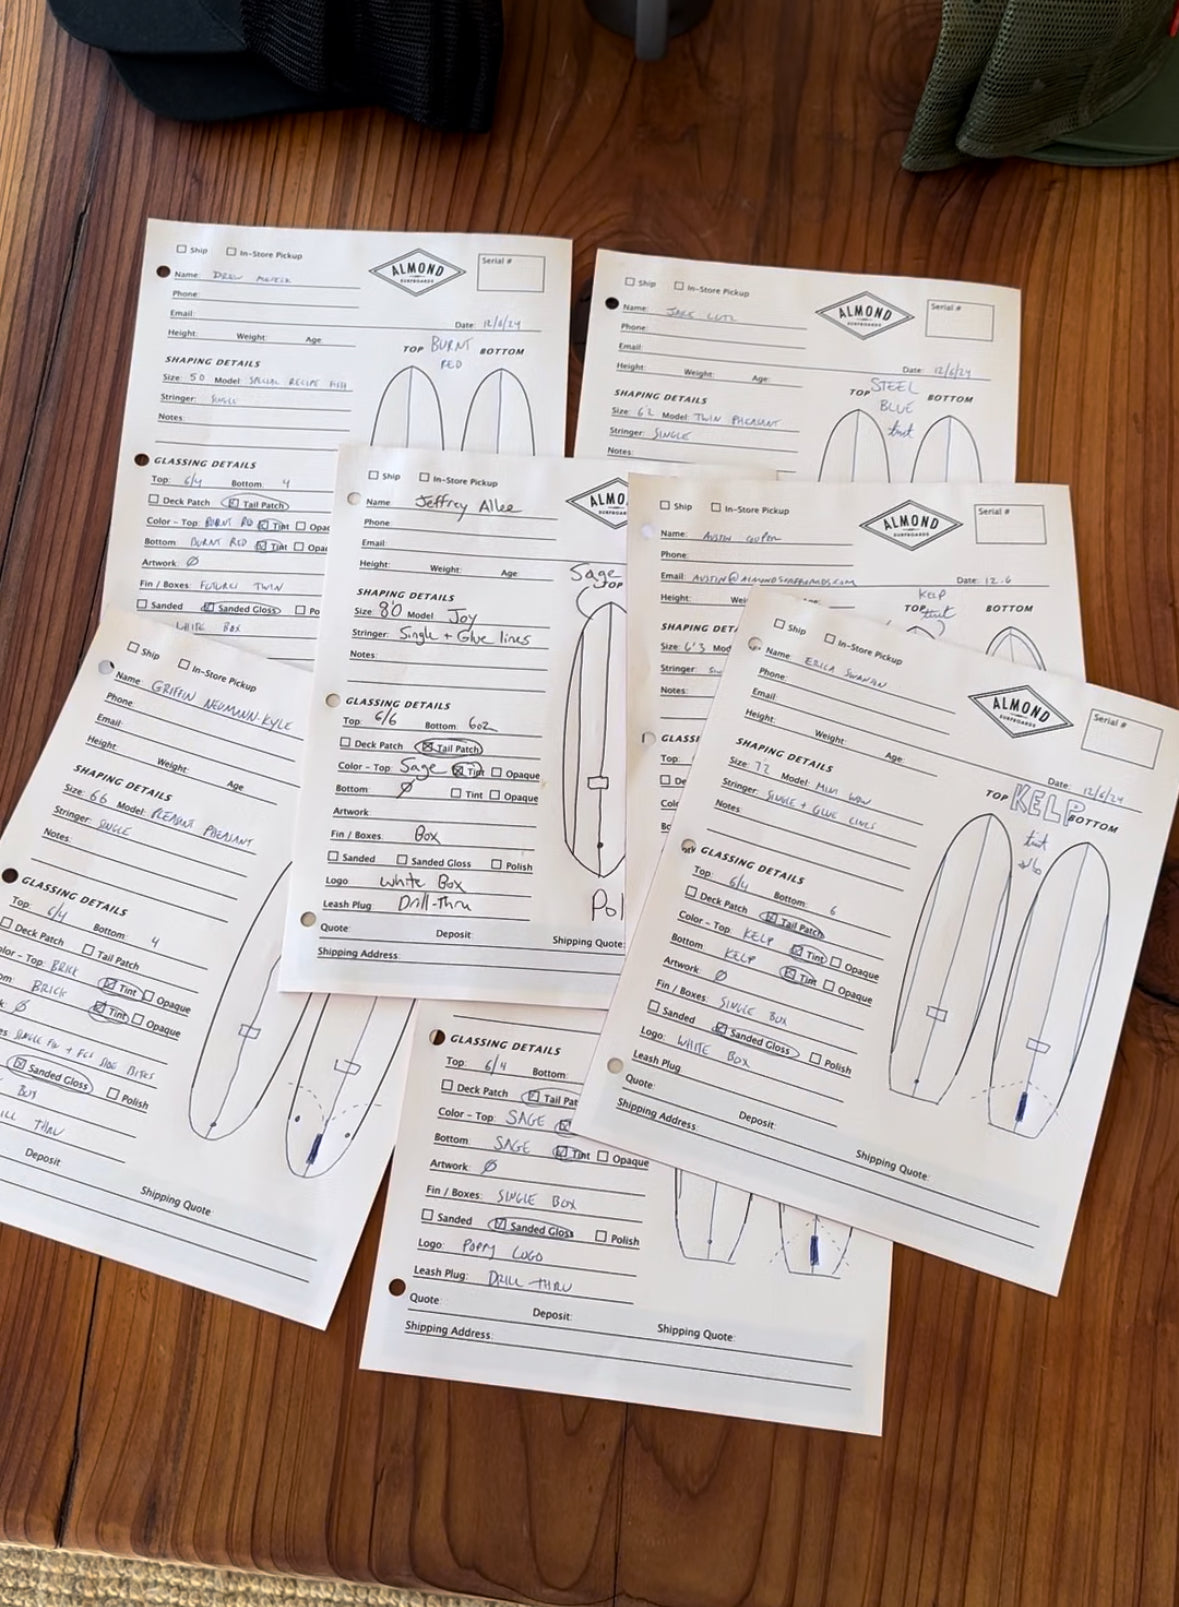 Ship In-Store Pickup
Name: DREW
ALMOND
SURFBOARDS
Serial #
Phone:
Email:
Date: 12/6/24
Height: Weight: Age:
TOP BURNT RED BOTTOM
SHAPING DETAILS
Size: 50 Model: SPECIAL RECIPE FISH
Stringer: SINGLE
Notes:
GLASSING DETAILS
Top: 6/4 Bottom: 4
Deck Patch Tail Patch
Color – Top: BURNT RED Tint Opac
Bottom: BURNT RED Tint Opac
Artwork: Ø
Fin / Boxes: FUTURES TWIN
Sanded Sanded Gloss Po
WHITE BOX
Ship In-Store Pickup
Name: JAKE LUTZ
ALMOND
SURFBOARDS
Serial #
Phone:
Email:
Height: Weight: Age:
Date: 12/6/24
TOP STEEL BLUE tint BOTTOM
SHAPING DETAILS
Size: 6'2 Model: TWIN PHEASANT
Stringer: SINGLE
Notes:
Ship In-Store Pickup
Name Jeffrey Allee
ALMO
Phone
Email:
Height: Weight: Age:
Sage
TOP
SHAPING DETAILS
Size: 80 Model Joy
Stringer: Single + Glue lines
Notes:
GLASSING DETAILS
Top: 6/6 Bottom: 6oz
Deck Patch Tail Patch
Color – Top: Sage Tint Opaque
Bottom: Ø Tint Opaque
Artwork:
Fin / Boxes: Box
Sanded Sanded Gloss Polish
Logo White Box
Leash Plug Drill-Thru
Pol
Quote: Deposit: Shipping Quote:
Shipping Address:
Ship In-Store Pickup
Name: AUSTIN
ALMOND
SURFBOARDS
Serial #
Phone:
Email: AUSTIN@ALMONDSURFBOARDS.COM
Date: 12.6
Height: Wei
KELP
TOP tint BOTTOM
SHAPING DET
Size: 6'3 Mod
Stringer:
Notes:
GLASSI
Top:
De
Colo
Bo
Ship In-Store Pickup
Name: ERICA SWANSON
ALMOND
SURFBOARDS
Serial #
Phone:
Email:
Height: Weight: Age:
Date: 12/6/24
TOP KELP BOTTOM
tint
SHAPING DETAILS
Size: 72 Model: MINI WOW
Stringer: SINGLE + GLUE LINES
Notes:
GLASSING DETAILS
Top: 6/4 Bottom: 6
Deck Patch Tail Patch
Color – Top: KELP Tint Opaque
Bottom KELP Tint Opaque
Artwork: Ø
Fin / Boxes: SINGLE BOX
Sanded Sanded Gloss Polish
Logo: WHITE BOX
Leash Plug
Quote: Deposit: Shipping Quote:
Shipping Address:
Ship In-Store Pickup
Name: GRIFFIN NEUMANN-KYLE
Phone:
Email:
Height: Weight: Age
SHAPING DETAILS
Size: 66 Model: PLEASANT PHEASANT
Stringer: SINGLE
Notes:
GLASSING DETAILS
Top: 6/4 Bottom: 4
Deck Patch Tail Patch
olor – Top: BRICK Tint Opaque
om BRICK Tint Opaque
k: Ø
es: SINGLE FIN + FCS SIDE BITES
Sanded Gloss Polish
BOX
ILL THRU
Deposit:
Shipping Quote
GLASSING DETAILS
Top: 6/4 Bottom:
Deck Patch Tail Pat
Color – Top: SAGE
Bottom SAGE Tint Opaque
Artwork: Ø
Fin / Boxes: SINGLE BOX
Sanded Sanded Gloss Polish
Logo: POPPY LOGO
Leash Plug: DRILL THRU
Quote: Deposit: Shipping Quote:
Shipping Address: